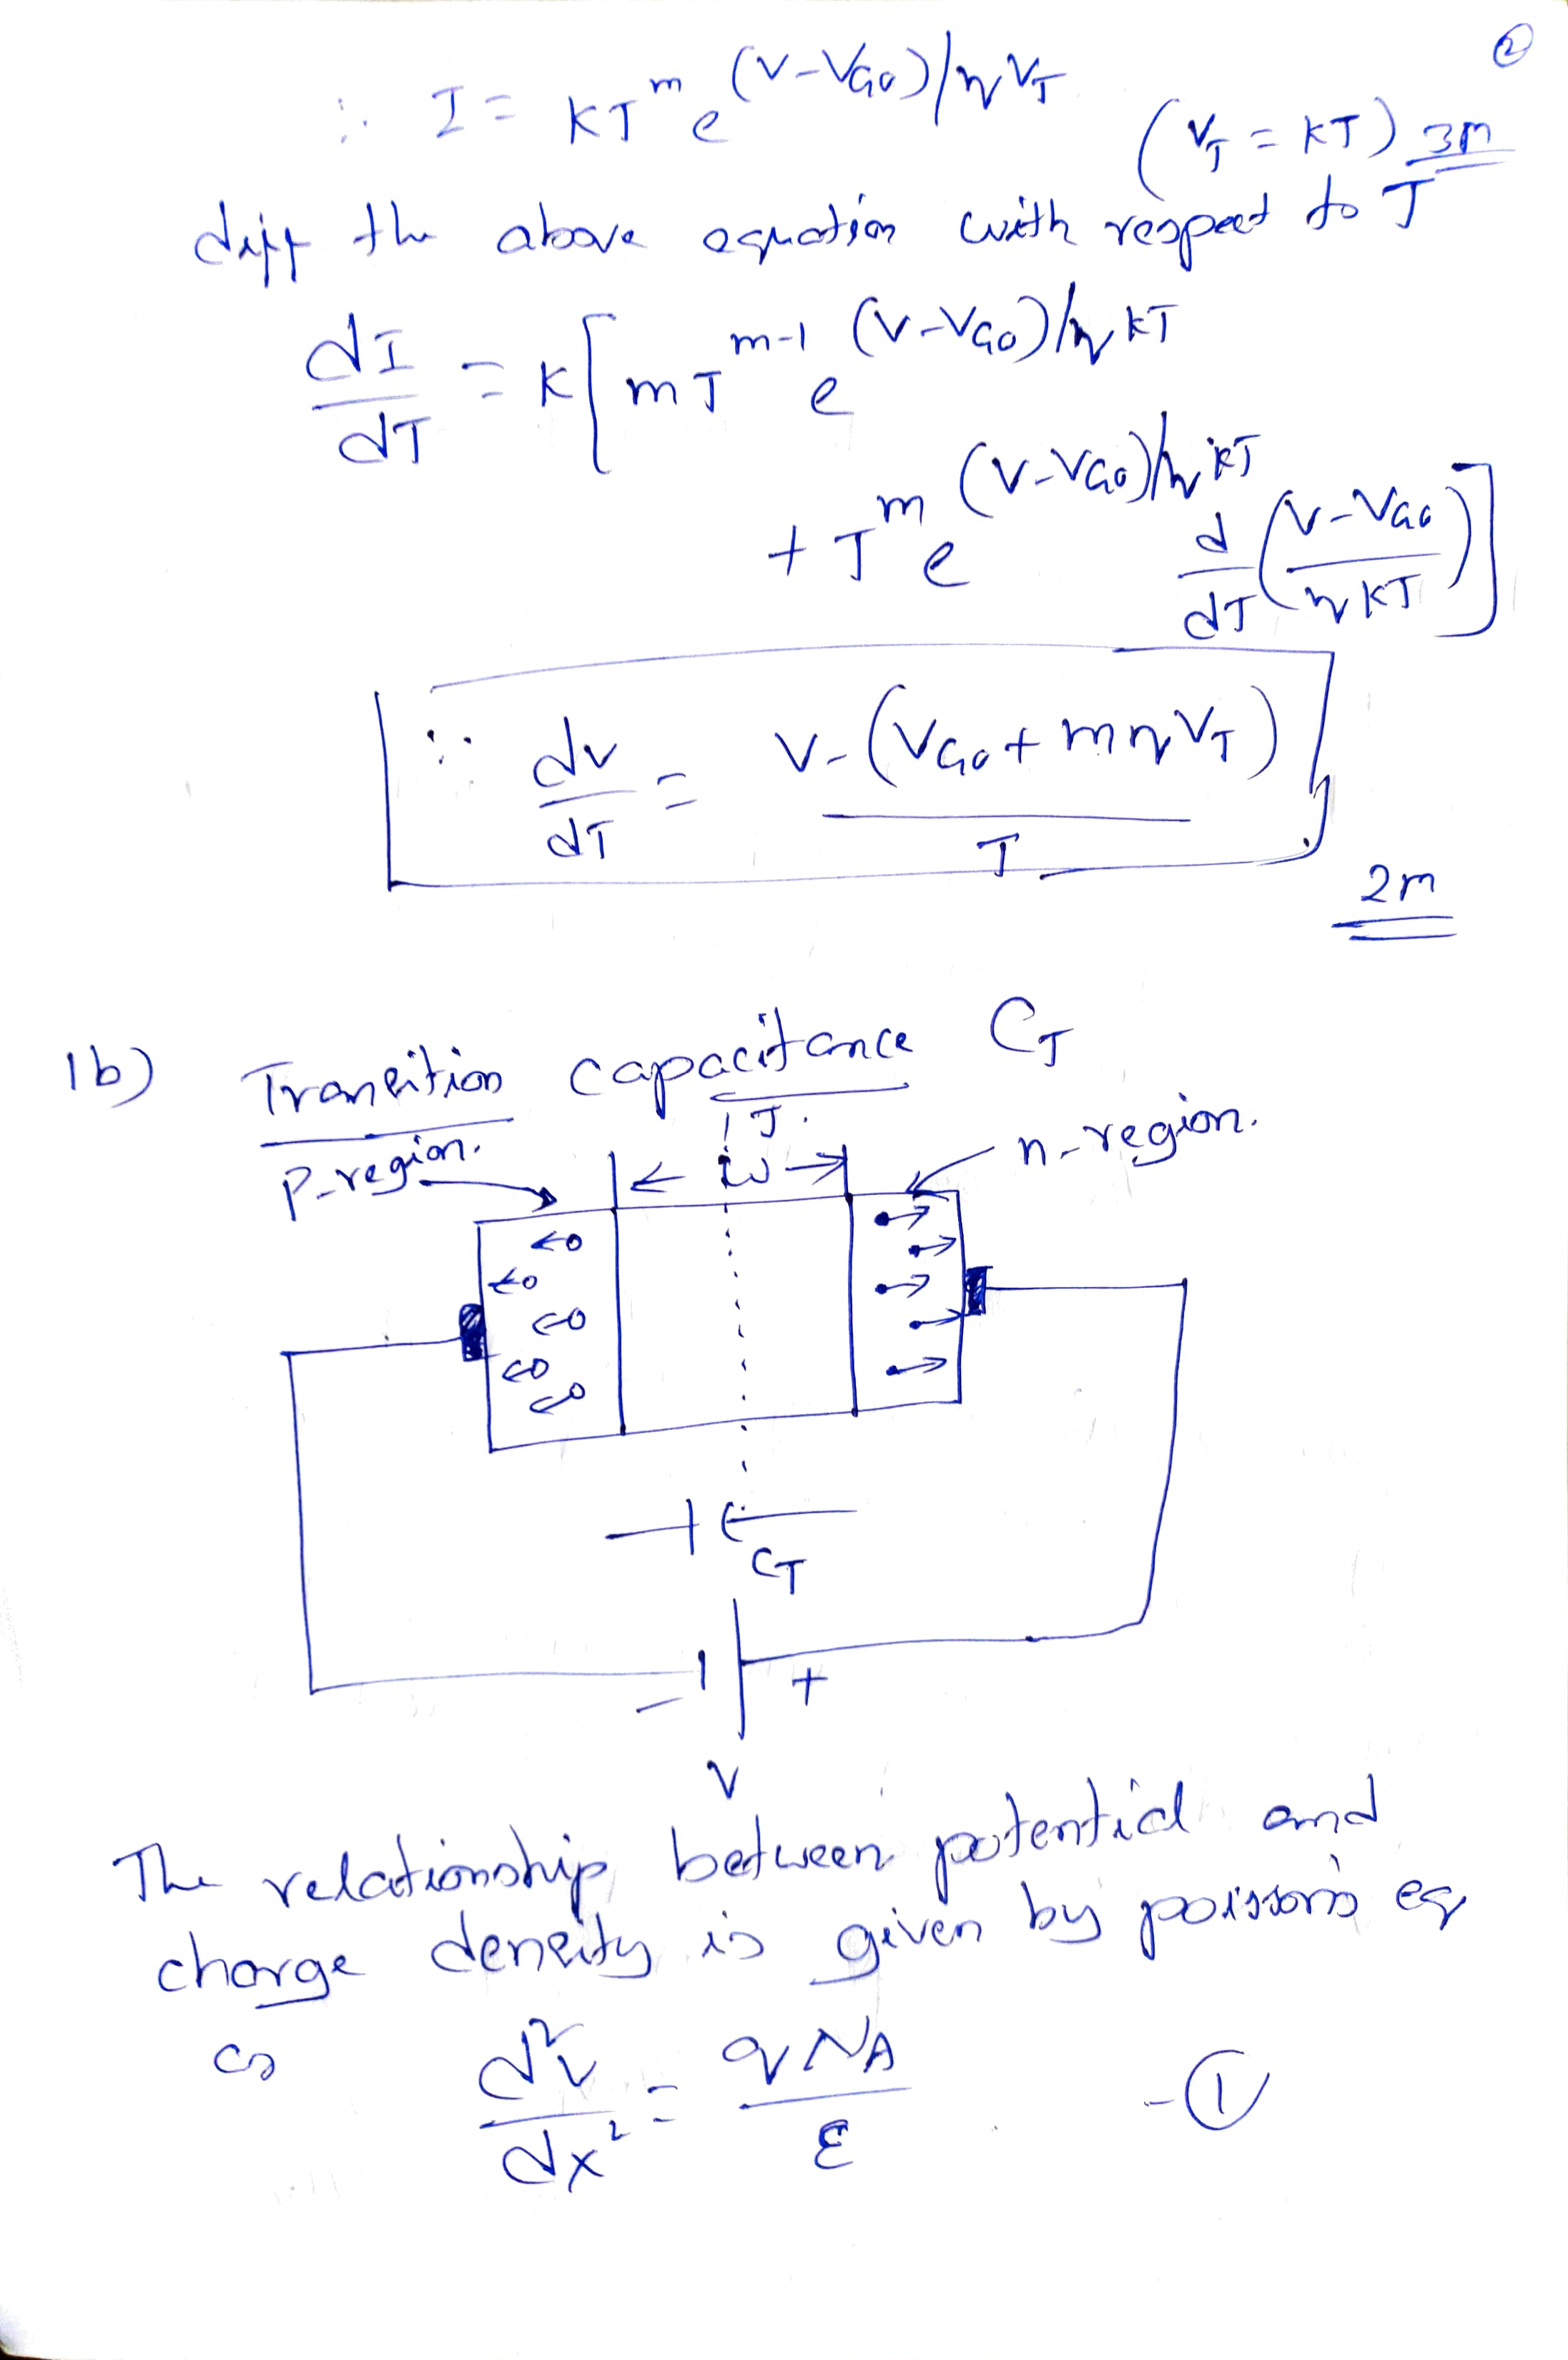 ②
∴ I = KT^m e^(V-VG0)/ηVT
(VT = KT) 3m
diff the above equation with respect to T
dI/dT = K[ mT^m-1 e^(V-VG0)/ηKT
+ T^m e^(V-VG0)/ηKT d/dT (V-VG0/ηKT)]
∵ dv/dT = V-(VG0+mηVT)/T
2m
1b) Transition capacitance CT
J.
P-region. ← W → n-region.
CT
- +
V
The relationship between potential and
charge density is given by poisson's eq
as d²v/dx² = qNA/ε -①